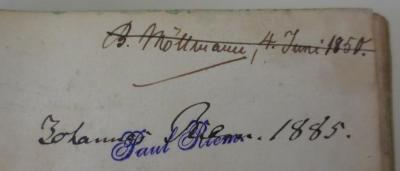 B. Möllmann, 4. Juni 1850.
Johannes Riem. 1885.
Paul Riem